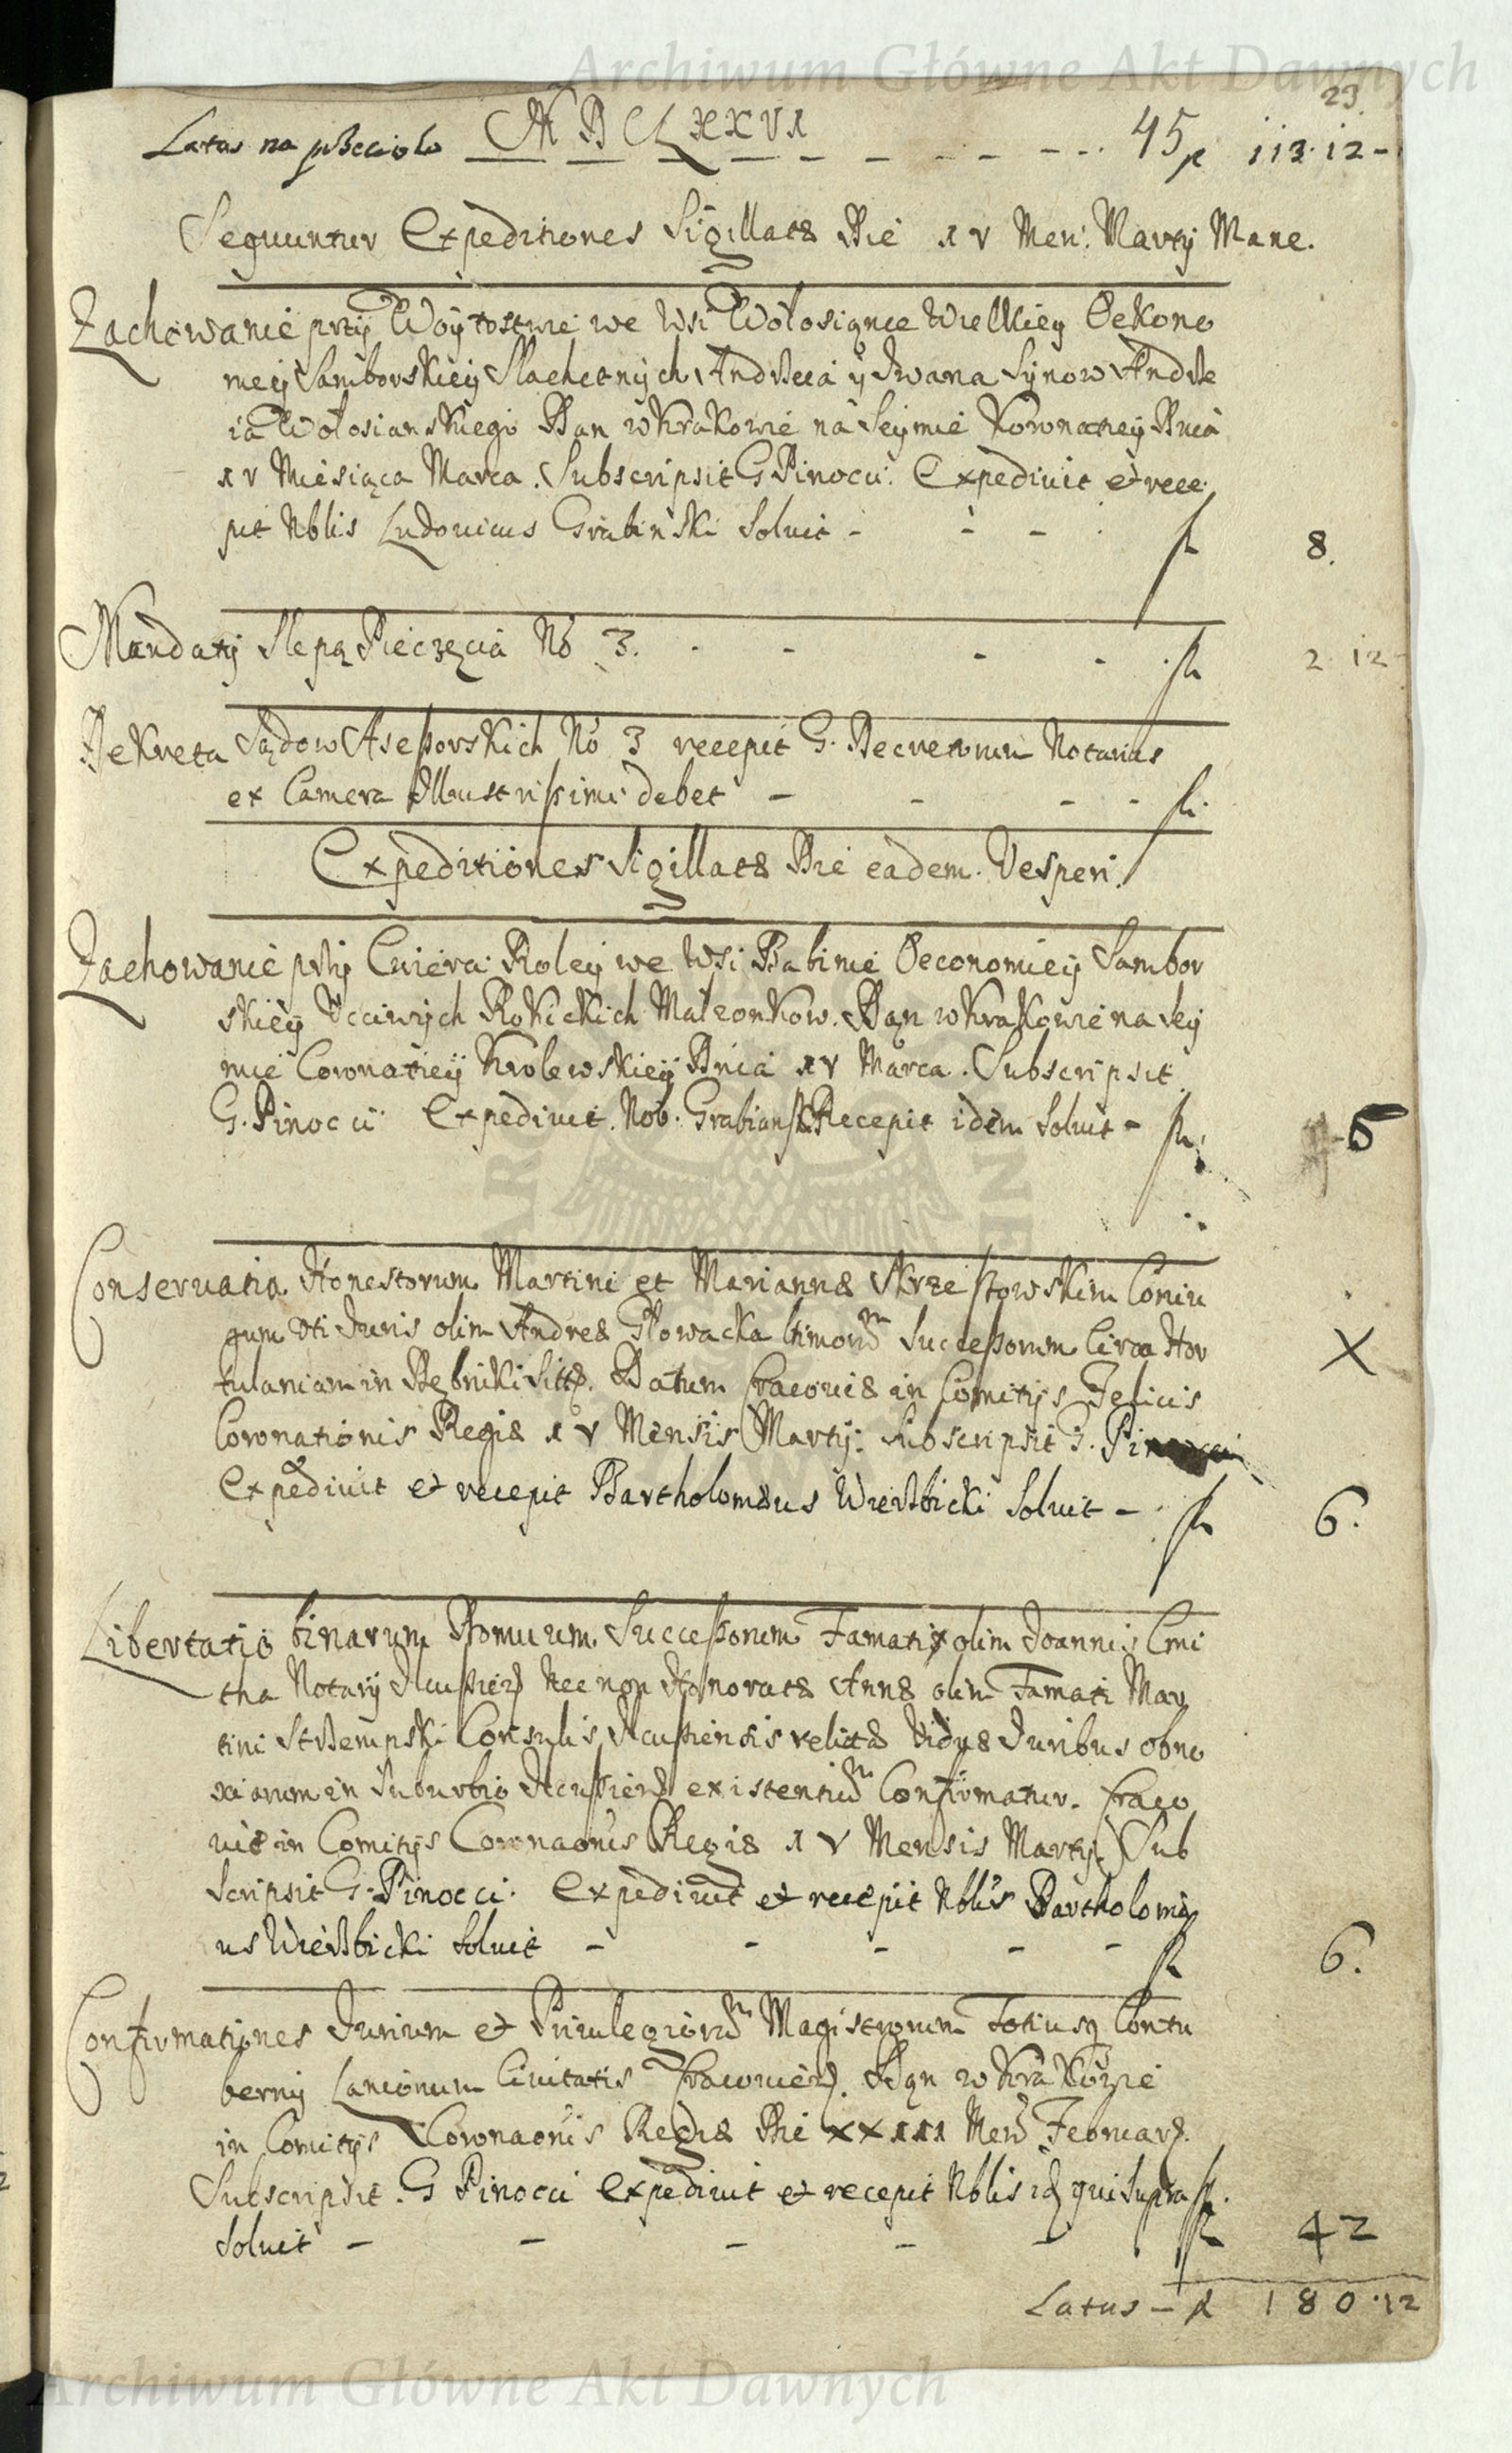 Archiwum Główne Akt Dawnych
23
MDCLXXVI
Latus na przeciolo 45 113 12
Sequuntur Expeditiones Sigillatæ Die 15 Men: Martij Mane.
Zachowanie przÿ Woÿtostwie we Wsi Wołosiąnce Wielkieÿ Oekono
mieÿ Samborskieÿ Slachetnÿch Andrzeia ÿ Iwana Sÿnow Andrze
ia Wołosianskiego Dan w Krakowie na Seÿmie Koronatieÿ Dnia
15 Miesiąca Marca. Subscripsit G. Pinocci. Expediuit et rece
pit Nblis Ludouicus Grabinski Soluit fl 8.
Mandatÿ Slepą Pieczęcią No 3. fl 2 12
Dekreta Sądow Aseßorskich No 3 recepit G. Decretorum Notarius
ex Camera Illustrißimi debet fl.
Expeditiones Sigillatæ Die eadem Vesperi.
Zachowanie przÿ Cwierci Roleÿ we Wsi Babinie Oeconomieÿ Sambor
skieÿ Vcciwÿch Rokickich Małzonkow. Dan w Krakowie na Seÿ
mie Coronatieÿ Krolewskieÿ Dnia 15 Marca. Subscripsit
G. Pinocci Expediuit Nob. Grabianski Recepit idem Soluit fl 5
Conseruatio Honestorum Martini et Mariannæ Skrzestowskim Coniu
X
gum Vti Iuris olim Andreæ Głowacka Successorum Circa Hor
tulaniam in Dębniki Datum Cracouiæ in Comitijs Felicis
Coronationis Regiæ 15 Mensis Martij. Subscripsit G. Pinocci
Expediuit et recepit Bartholomæus Wierzbicki Soluit fl 6.
Libertatio binarum Domuum Successorum Famati olim Ioannis Cmi
tha Notarij Ilcusien Nec non Honoratæ Annæ olim Famati Mar
tini Strzempski Consulis Ilcusiensis relictæ Viduæ Iuribus obno
xiarum in Suburbio Ilcusien existentium Confirmatur. Craco
uiæ in Comitijs Coronaonis Regiæ 15 Mensis Martij Sub
scripsit G. Pinocci. Expediuit et recepit Nblis Bartholomæ
us Wierzbicki Soluit fl 6.
Confirmationes Iurium et Priuilegiorum Magistrorum Totiusq Contu
bernij Lanionum Ciuitatis Cracouien. Dan w Krakowie
in Comitijs Coronaonis Regiæ Die XXIII Men Februarij.
Subscripsit. G Pinocci Expediuit et recepit Nblis id qui supra
Soluit fl 42
Latus fl 180 12
Archiwum Główne Akt Dawnych